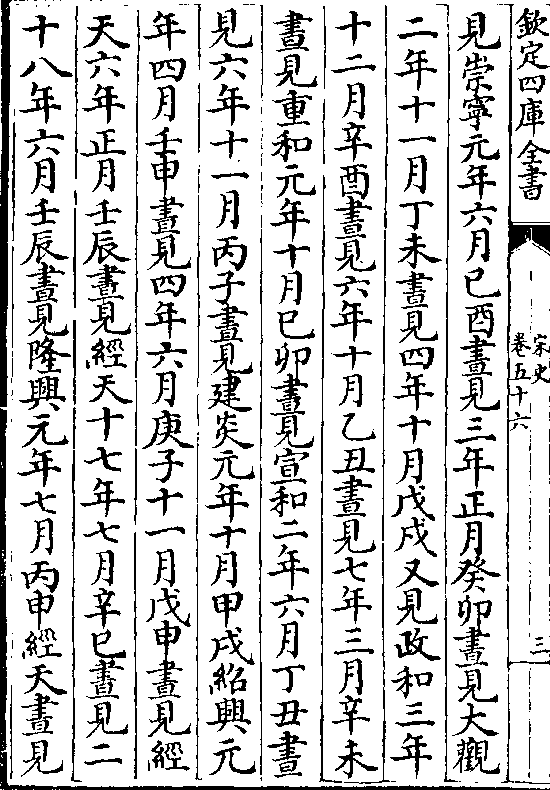 欽定四庫全書
宋史
卷五十六
三
見崇寧元年六月己酉晝見三年正月癸卯晝見大觀
二年十一月丁未晝見四年十月戊戌又見政和三年
十二月辛酉晝見六年十月乙丑晝見七年三月辛未
晝見重和元年十月己卯晝見宣和二年六月丁丑晝
見六年十一月丙子晝見建炎元年十月甲戌紹興元
年四月壬申晝見四年六月庚子十一月戊申晝見經
天六年正月壬辰晝見經天十七年七月辛巳晝見二
十八年六月壬辰晝見隆興元年七月丙申經天晝見